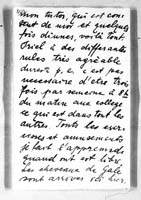 mon tutor, qui est con
tent de moi et quelques
fois dinner, voilà tout
Oriel a des differents
rules très agréable
durest p. e. c'est pas
necessaire d'etre trois
fois par semaine à 8 h
du matin aux college
ce qui est dans tout les
autres. Touts les exer
cises et amusements
je fait l'apprennds
quand ont est libre.
Les cheveaux de Galé
sont arrivés ici hier